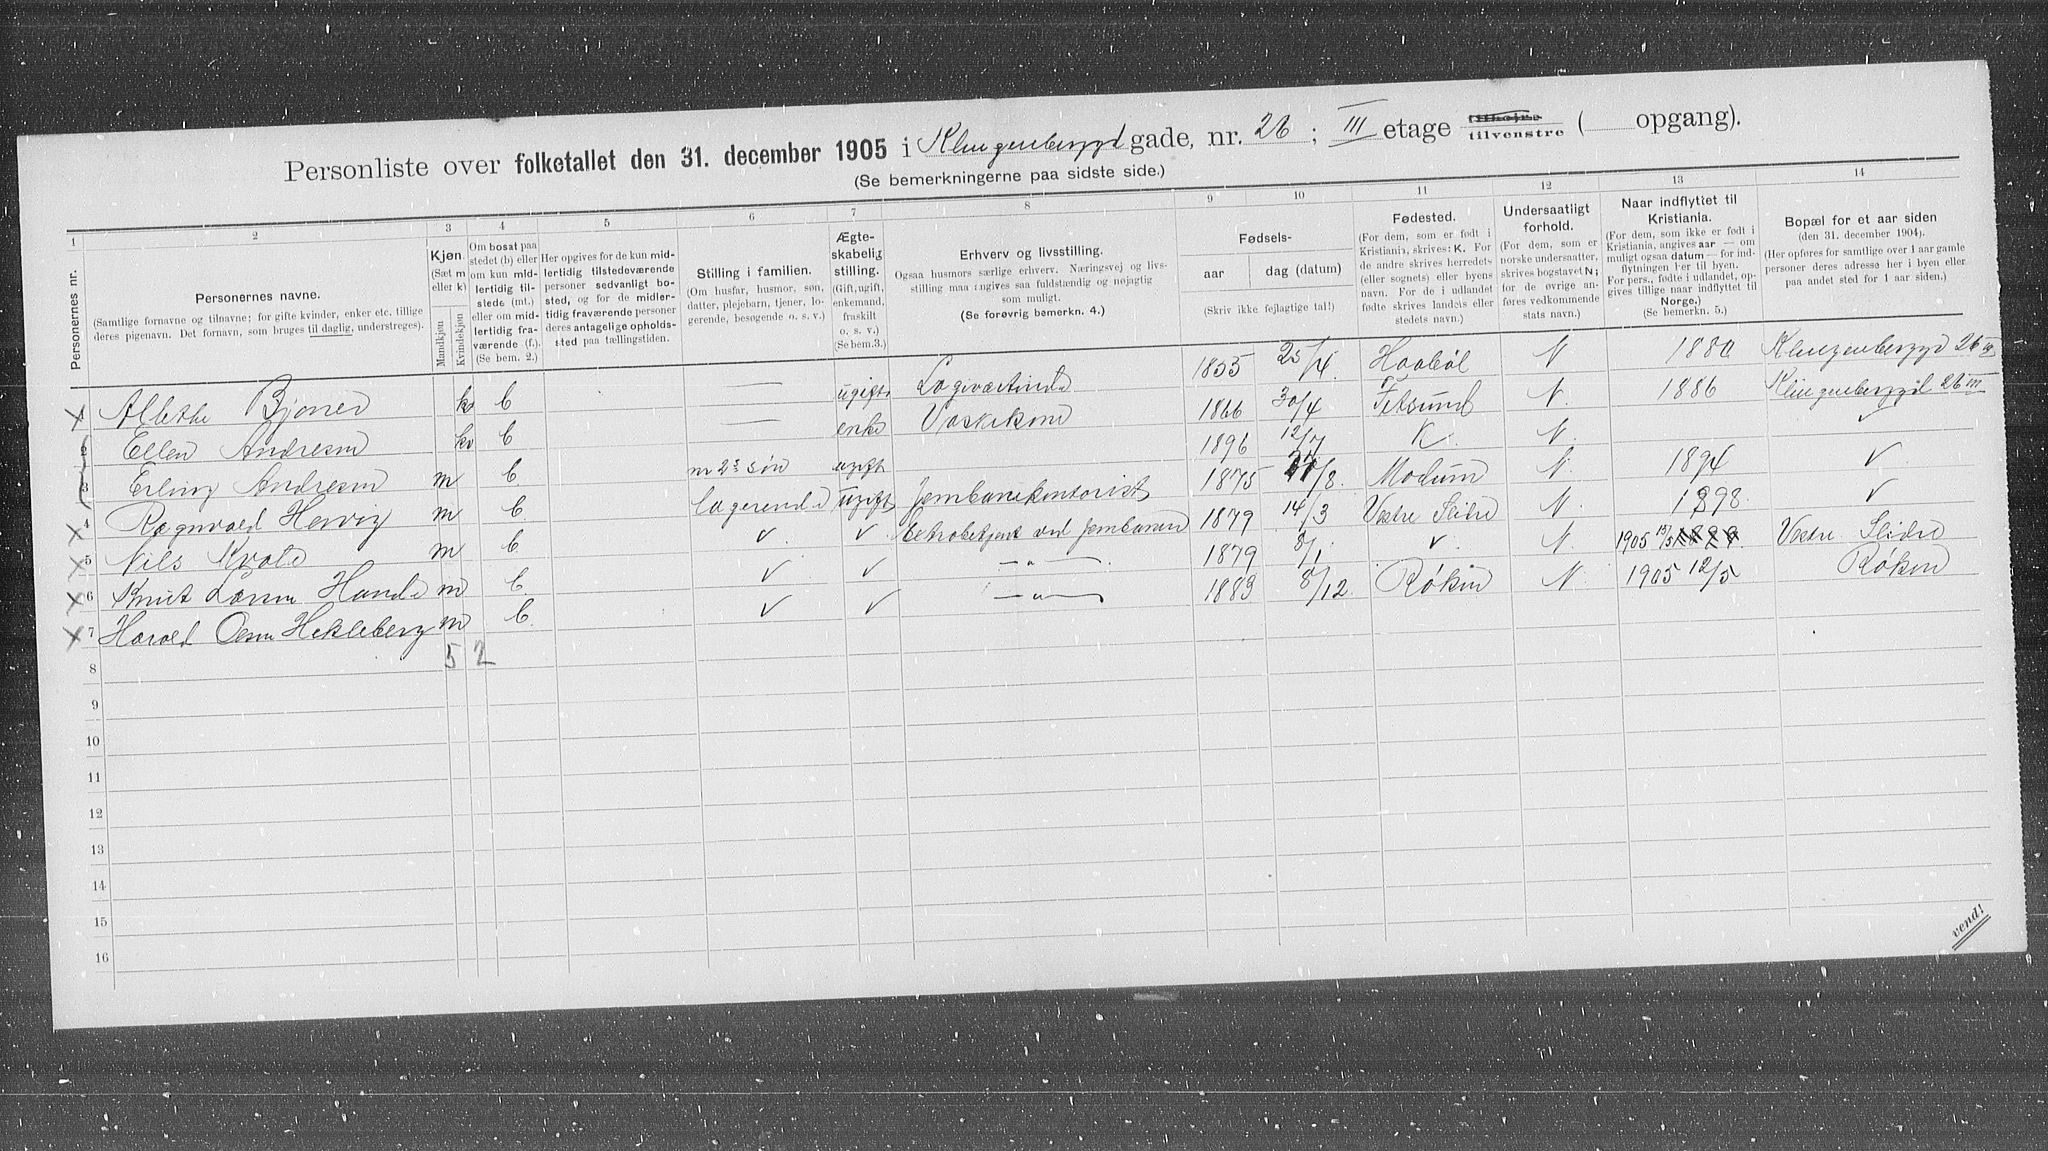 Personliste over folketallet den 31. december 1905 i Klingenberggd gade, nr. 26; III etage tilhøire tilvenstre ( opgang).
(Se bemerkningerne paa sidste side.)
1 2 3 4 5 6 7 8 9 10 11 12 13 14
Personernes nr.
Personernes navne.
(Samtlige fornavne og tilnavne; for gifte kvinder, enker etc. tillige deres pigenavn. Det fornavn, som bruges til daglig, understreges).
Kjøn.
(Sæt m eller k)
Mandkjøn
Kvindekjøn
Om bosat paa stedet (b) eller om kun midlertidig tilstede (mt.) eller om midlertidig fraværende (f.).
(Se bem. 2.)
Her opgives for de kun midlertidig tilstedeværende personer sedvanligt bosted, og for de midlertidig fraværende personer deres antagelige opholdssted paa tællingstiden.
Stilling i familien.
(Om husfar, husmor, søn, datter, plejebarn, tjener, logerende, besøgende o. s. v.)
Ægteskabelig stilling.
(Gift, ugift, enkemand, fraskilt o. s. v.)
(Se bem. 3.)
Erhverv og livsstilling.
Ogsaa husmors særlige erhverv. Næringsvej og livsstilling maa angives saa fuldstændig og nøjagtig som muligt.
(Se forøvrig bemerkn. 4.)
Fødsels-
aar dag (datum)
(Skriv ikke fejlagtige tal!)
Fødested.
(For dem, som er født i Kristiania, skrives: K. For de andre skrives herredets (eller sognets) eller byens navn. For de i udlandet fødte skrives landets eller stedets navn.)
Undersaatligt forhold.
(For dem, som er norske undersaatter, skrives bogstavet N; for de øvrige anføres vedkommende stats navn.)
Naar indflyttet til Kristiania.
(For dem, som ikke er født i Kristiania, angives aar — om muligt ogsaa datum — for indflytningen her til byen. For pers., fødte i udlandet, opgives tillige naar indflyttet til Norge.)
(Se bemerkn. 5.)
Bopæl for et aar siden
(den 31. december 1904).
(Her opføres for samtlige over 1 aar gamle personer deres adresse her i byen eller paa andet sted for 1 aar siden.)
1 Alethe Bjoner k b — ugift Logivertinde 1855 25/4 Haabøl N 1880 Klingenberggd 26 III
2 Ellen Andresen k b — enke Vaskekone 1866 30/4 Fetsund N. 1886 Klingenberggd 26 III
3 Erling Andresen m b n 2s søn ugift 1896 12/7 K. N. ✓
4 Ragnvald Hervig m b logerende ugift Jernbanekontorist 1875 /8. Modum N. 1894 ✓
5 Nils Kvale m b ✓ ✓ ved Jernbanen 1879 14/3 Vestre Slidre N. 1898. ✓
6 Knut Hande m b. ✓ ✓ — " — 1879 8/1 ✓ N. 1905 Vestre Slidre
7 Harald Hekleberg m b. ✓ ✓ — " — 1883 8/12. Røken N. 1905 12/5 Røken
8 5 2
9
10
11
12
13
14
15
16
vend!